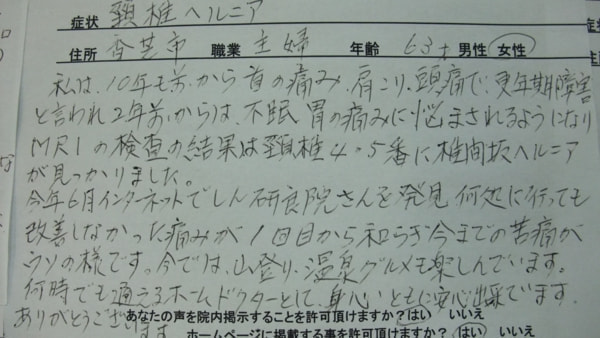 症状 頚椎ヘルニア
住所 香芝市 職業 主婦 年齢 63才 男性 女性
私は、10年も前から首の痛み、肩こり、頭痛で、更年期障害
と言われ2年前からは、不眠 胃の痛みに悩まされるようになり
MRIの検査の結果は頚椎4・5番に椎間板ヘルニア
が見つかりました。
今年6月インターネットでしん研良院さんを発見 何処に行っても
改善しなかった痛みが1回目から和らぎ今までの苦痛が
ウソの様です。今では、山登り、温泉グルメも楽しんでいます。
何時でも通えるホームドクターとして、身心ともに安心出来ています。
ありがとうございます
あなたの声を院内掲示することを許可頂けますか? はい いいえ
ホームページに掲載する事を許可頂けますか? はい いいえ